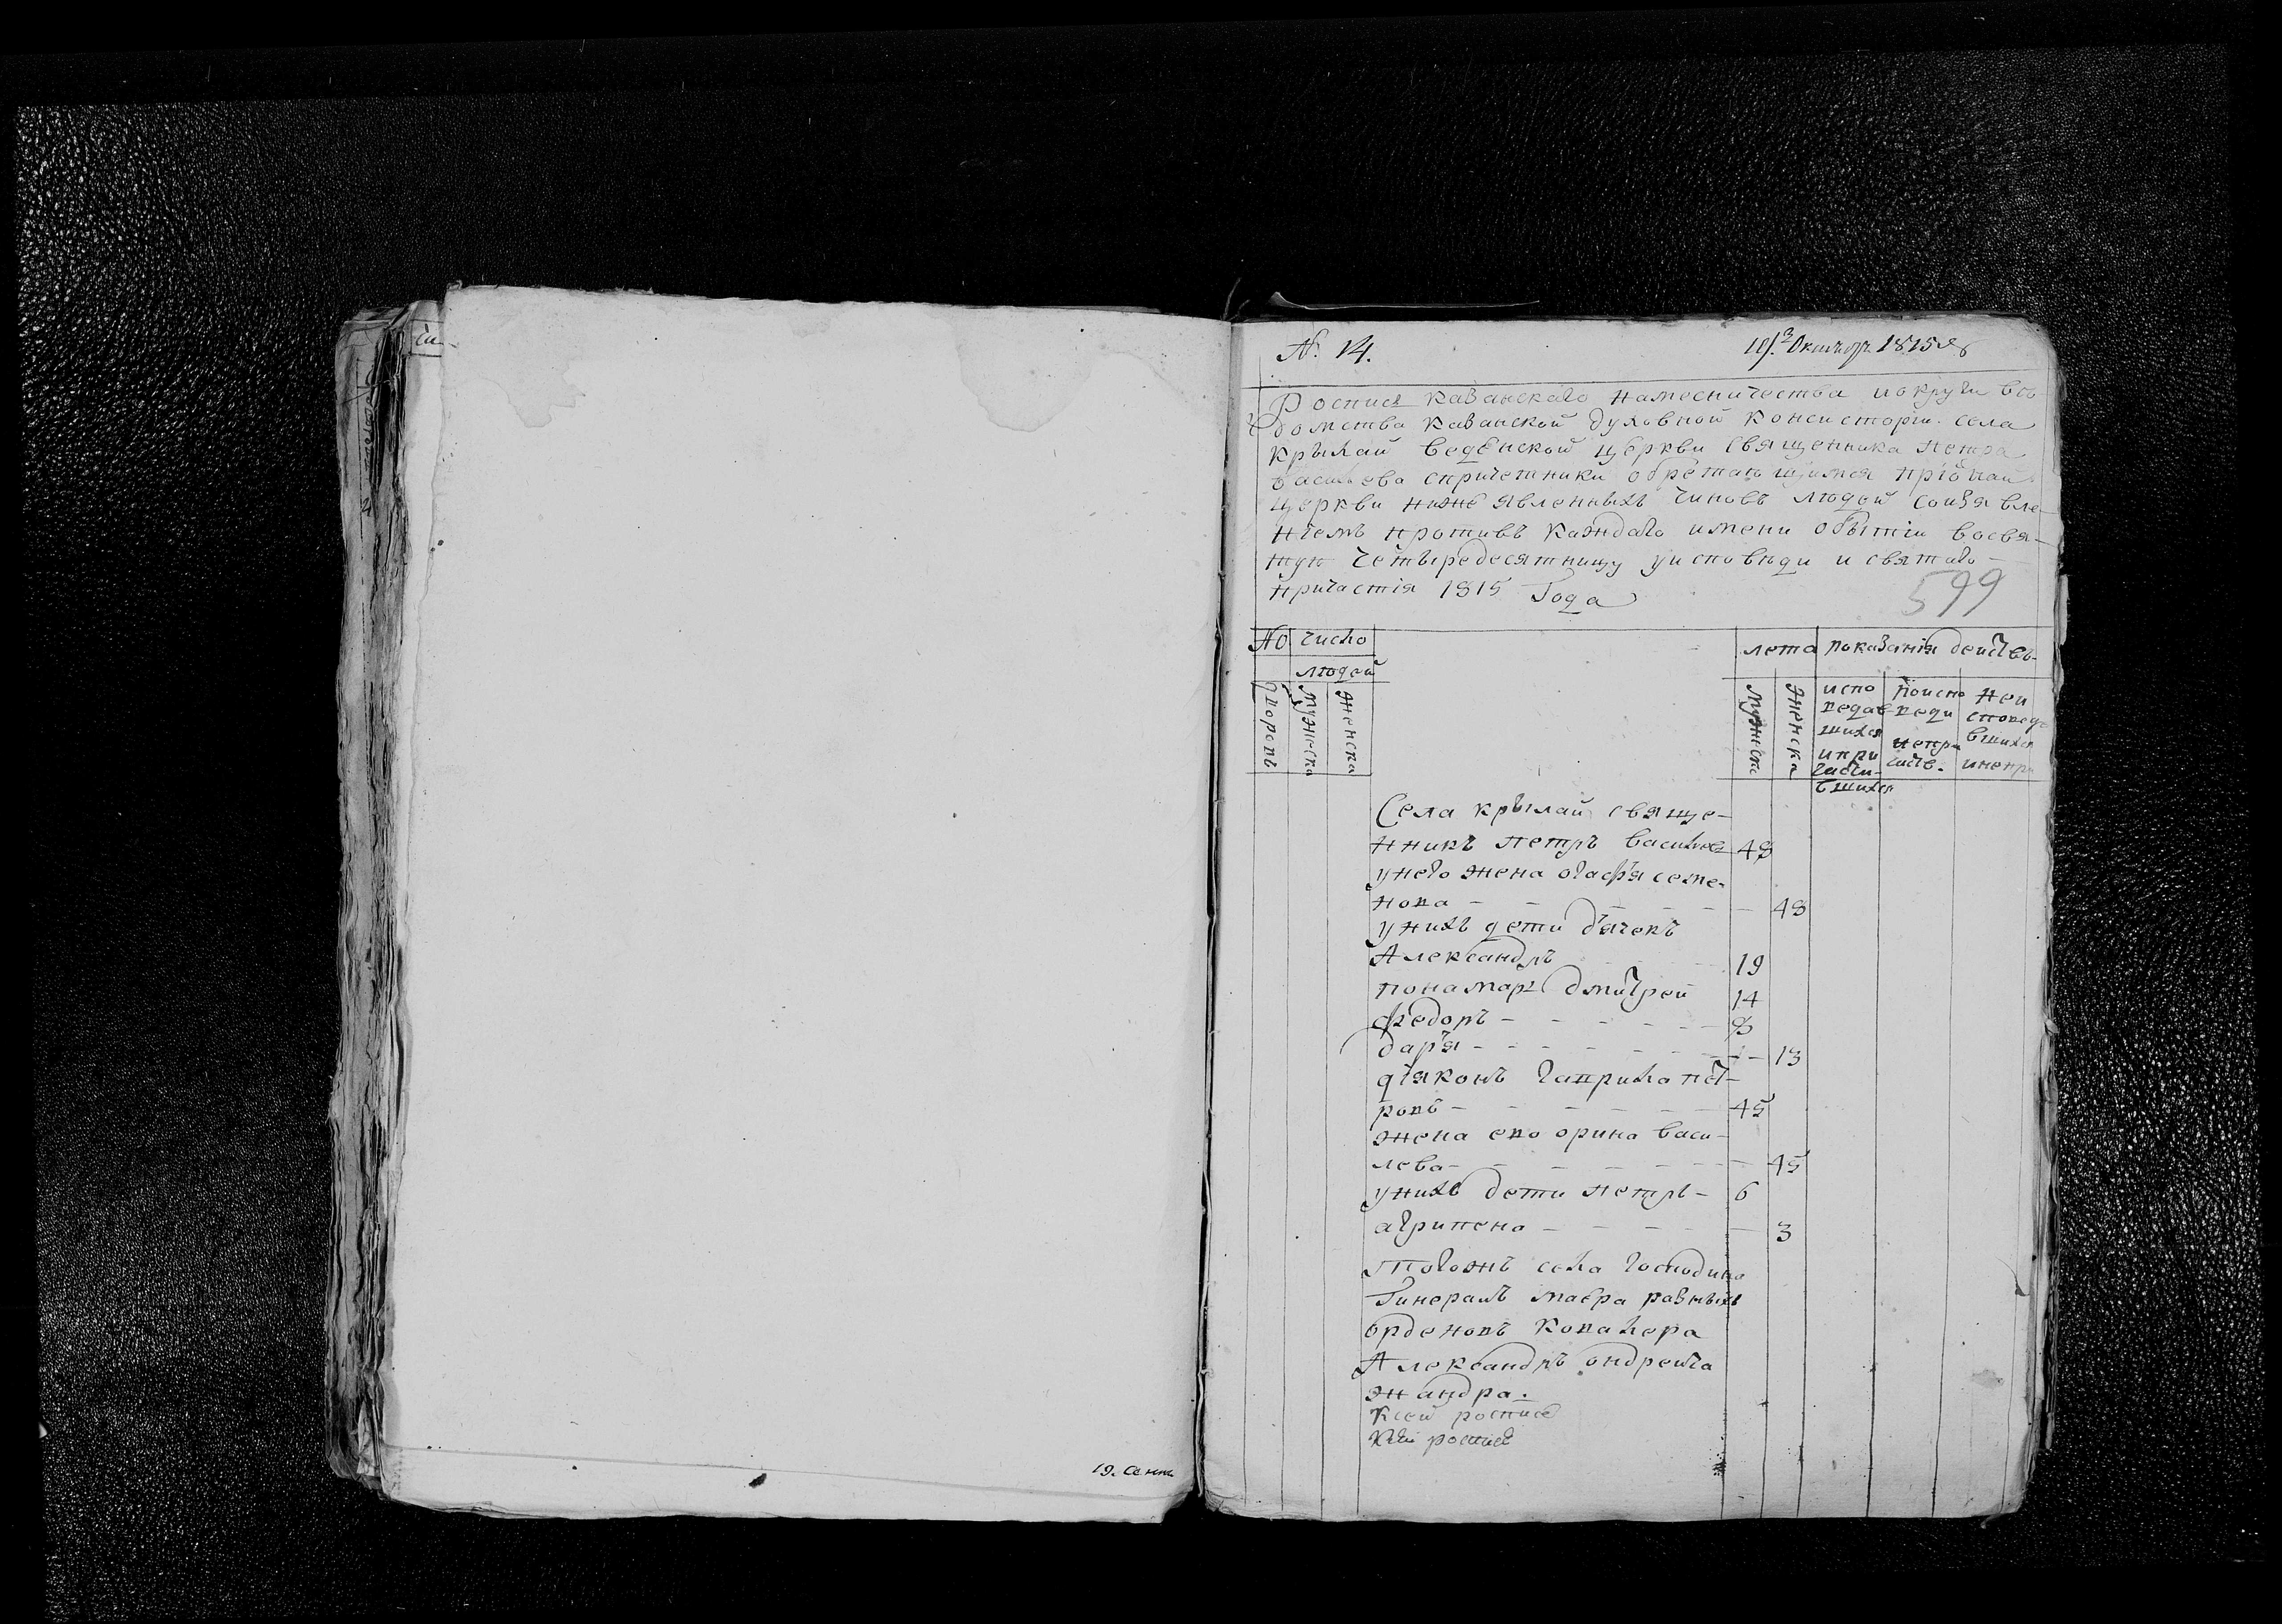 19. Сент
№. 14.
Октября 1815
Роспись казанскаго намесничества иокруги въ-
домства казанской духовной консистории. села
крылай веденской церкви священника петра
васильева спричетники обретающимся притой
церкви ниже явленныхъ чиновъ людей созявле-
нiемъ противъ каждаго имени обытiи восвя-
тую четыредесятницу уисповѣди и святаго
причастiя 1815 Года
599
№ число
людей
лета показанiя действъ-
Дворовъ
мужеска
женска
мужеска
женска
испо
ведав
шихся
ипри
части-
вшихся
поиспо
веди
непри
частв.
неи
споведо
вшихся
инепри
Села крылай свяще-
нникъ петръ василев 48
унего жена огафя семе-
нова - - - 48
унихъ дети дьячекъ
Александръ 19
понамарь дмитрей 14
федоръ - - - - - - 8
дарья - - - - - - - 13
дьяконъ гаврила пет-
ровъ - - - - - 45
жена ево орина васи-
лева - - - - - - 45
унихъ дети петръ - 6
агрипена - - - - - 3
тогожъ села господина
Гинералъ маеора разныхъ
орденовъ ковалера
Александръ ондреича
жандра.
ксей росписе
ксей росписе